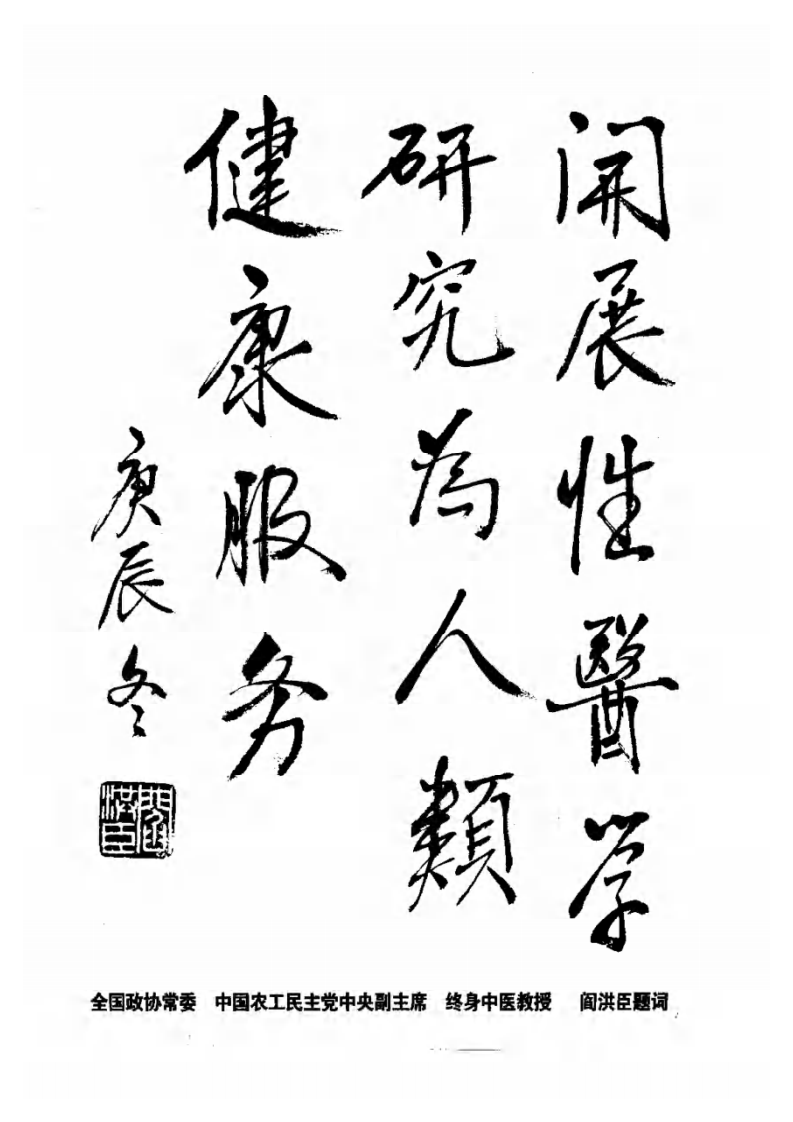 開展性醫学
研究為人類
健康服务
庚辰冬
閻洪臣
全国政协常委 中国农工民主党中央副主席 终身中医教授 阎洪臣题词